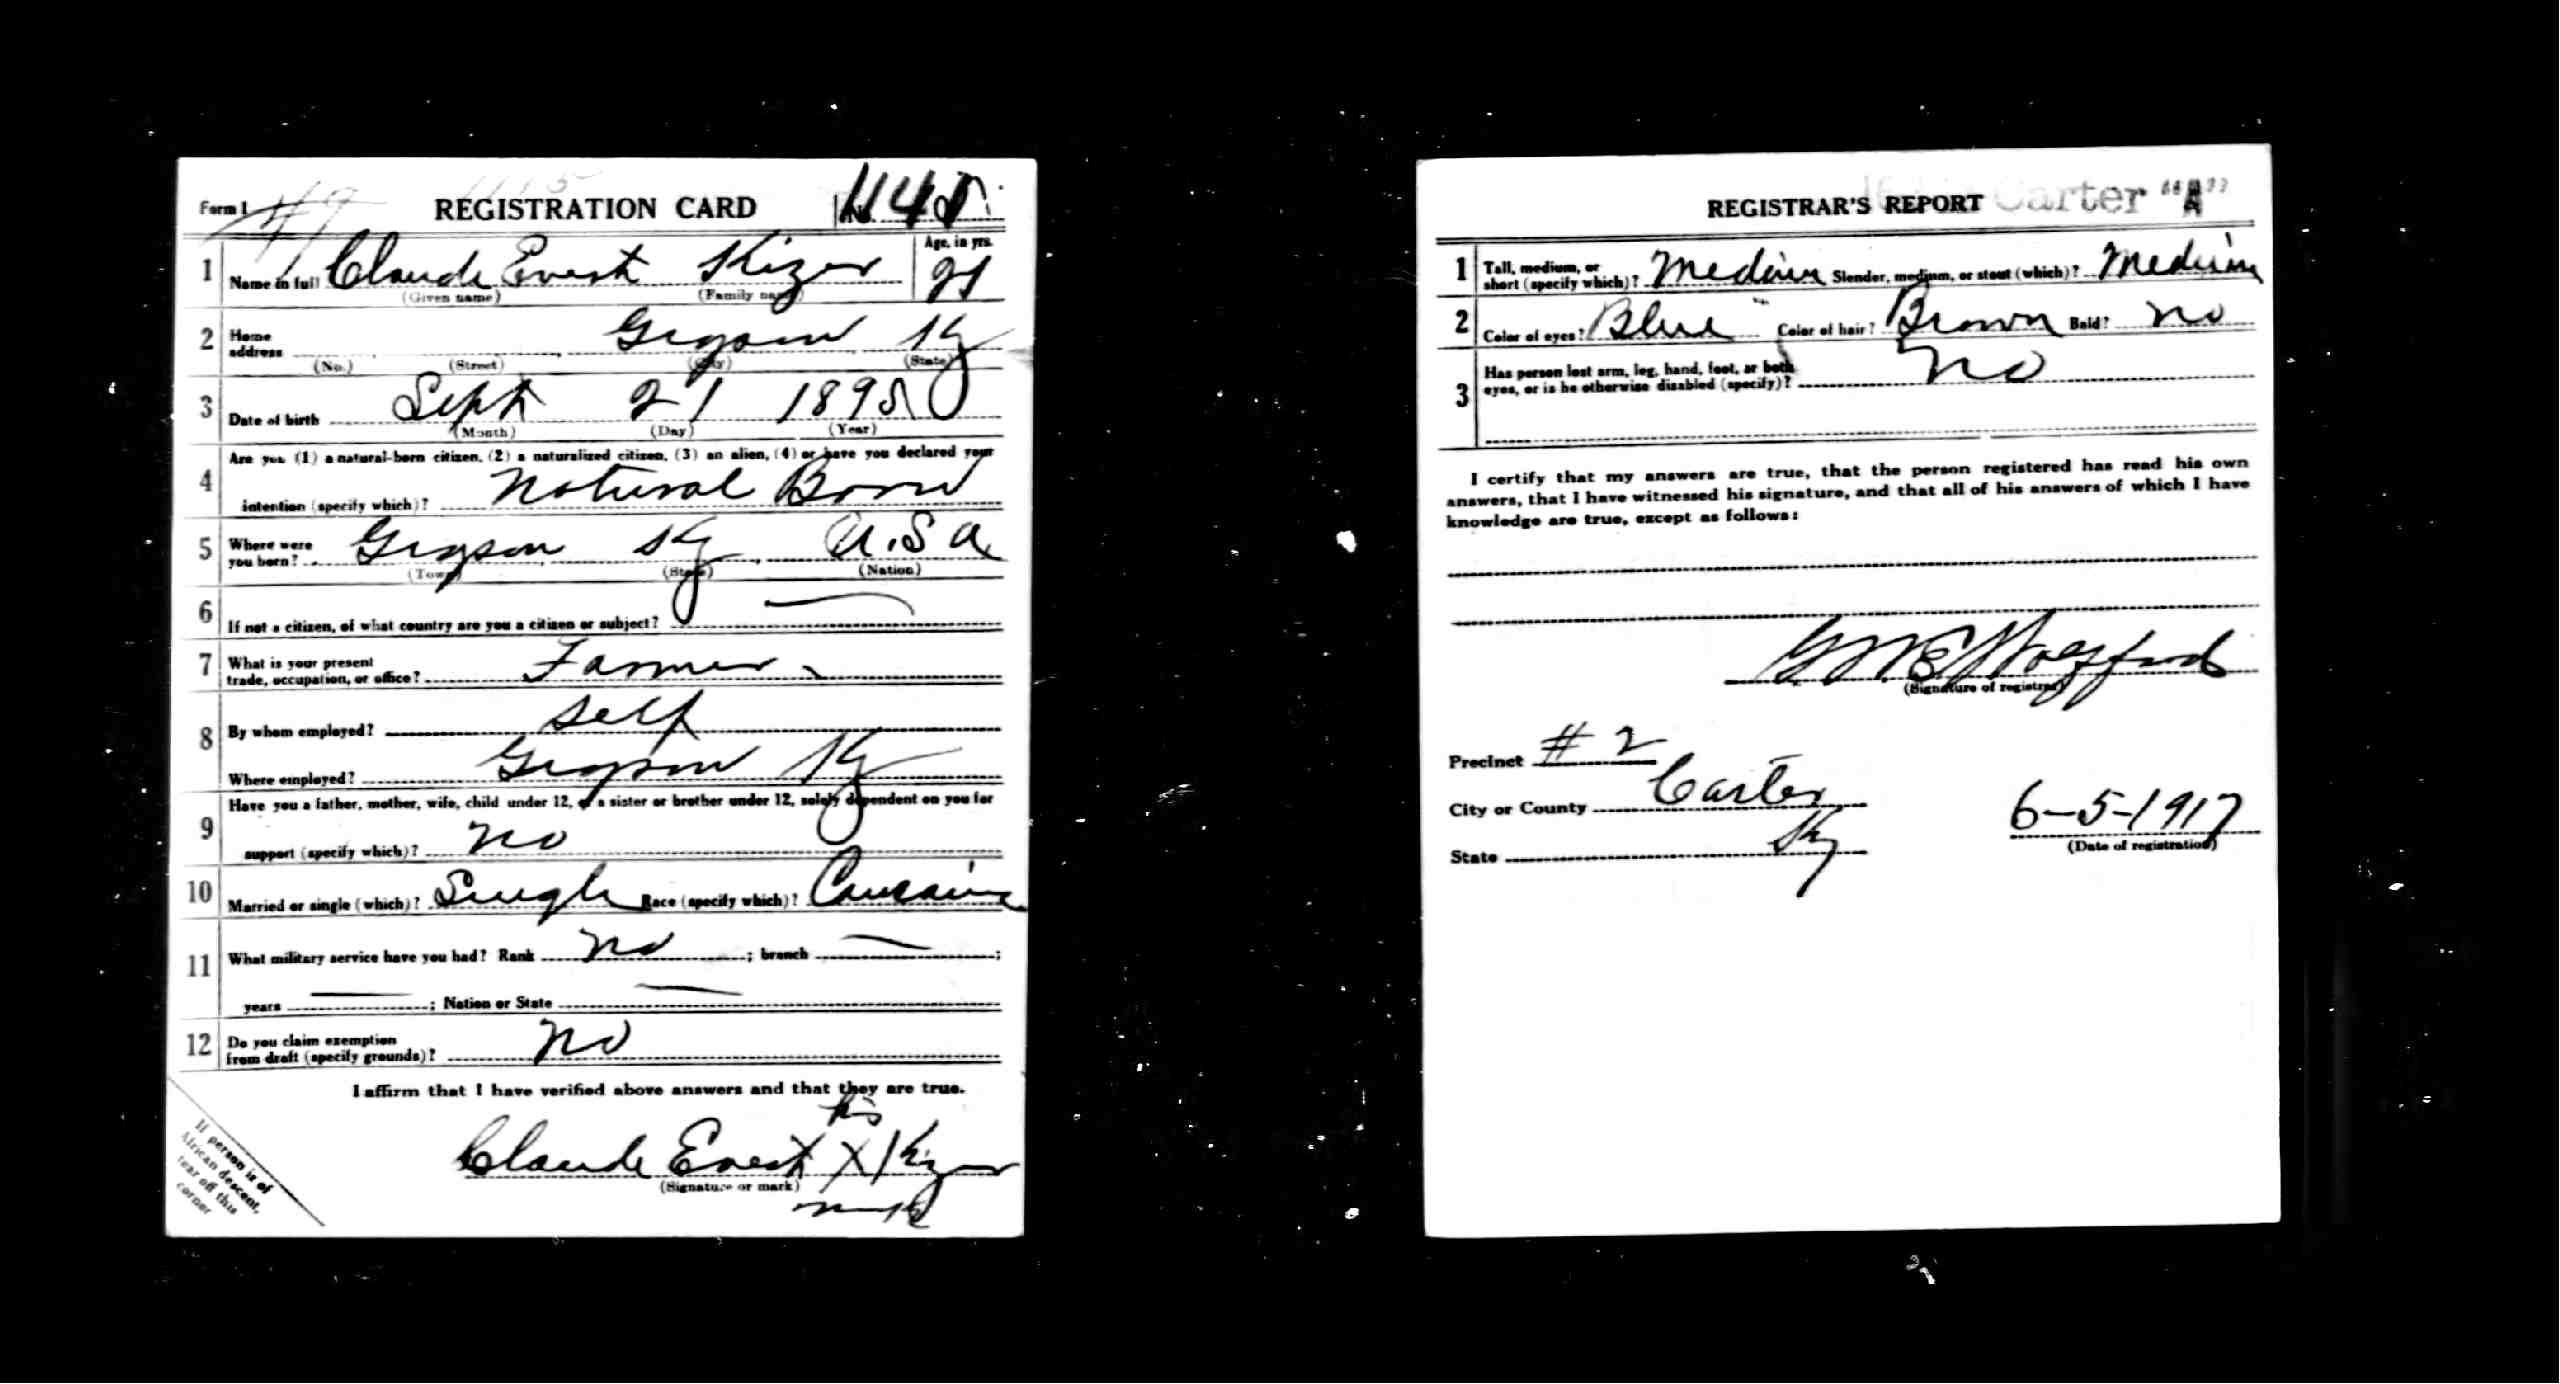 Form 1 REGISTRATION CARD No. 1145
1 Name in full Claude Evert Kizer Age, in yrs. 21
(Given name) (Family name)
2 Home address Grayson Ky
(No.) (Street) (City) (State)
3 Date of birth Sept 21 1895
(Month) (Day) (Year)
4 Are you (1) a natural-born citizen, (2) a naturalized citizen, (3) an alien, (4) or have you declared your
intention (specify which)? Natural Born
5 Where were you born? Grayson Ky U.S.A
(Town) (State) (Nation)
6 If not a citizen, of what country are you a citizen or subject?
7 What is your present trade, occupation, or office? Farmer
8 By whom employed? Self
Where employed? Grayson Ky
9 Have you a father, mother, wife, child under 12, or a sister or brother under 12, solely dependent on you for
support (specify which)? No
10 Married or single (which)? Single Race (specify which)? Caucasian
11 What military service have you had? Rank No ; branch ;
years ; Nation or State
12 Do you claim exemption from draft (specify grounds)? No
I affirm that I have verified above answers and that they are true.
his
Claude Evert X Kizer
(Signature or mark)
mark
If person is of
African descent,
tear off this
corner
REGISTRAR'S REPORT Carter "A"
1 Tall, medium, or short (specify which)? Medium Slender, medium, or stout (which)? Medium
2 Color of eyes? Blue Color of hair? Brown Bald? No
3 Has person lost arm, leg, hand, foot, or both
eyes, or is he otherwise disabled (specify)? No
I certify that my answers are true, that the person registered has read his own
answers, that I have witnessed his signature, and that all of his answers of which I have
knowledge are true, except as follows:
(Signature of registrar)
Precinct # 2
City or County Carter
State Ky
6-5-1917
(Date of registration)